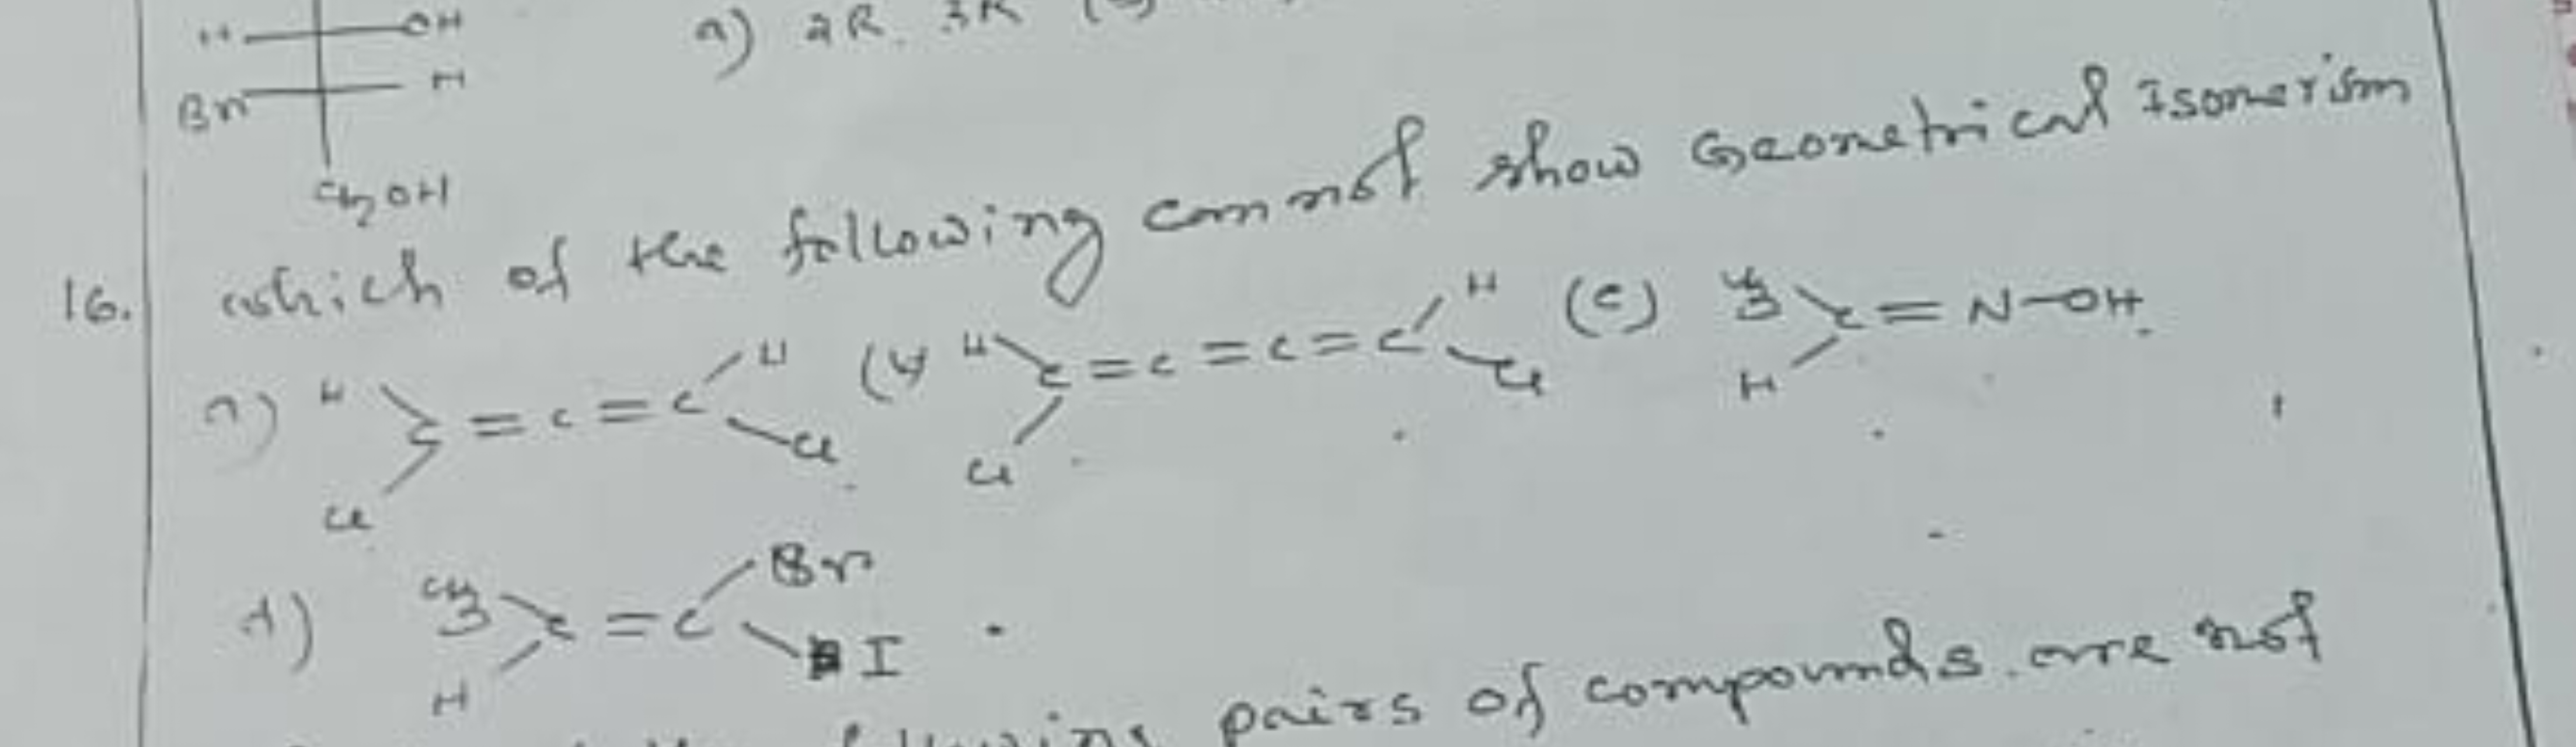 H OH a) 2R. 3R
Br H
CH2OH
16. which of the following cannot show Geometrical Isomerism
a) H Cl C = C = C H Cl (b) H Cl C = C = C = C H Cl (c) CH3 H C = N-OH.
d) CH3 H C = C Br I
pairs of compounds are not